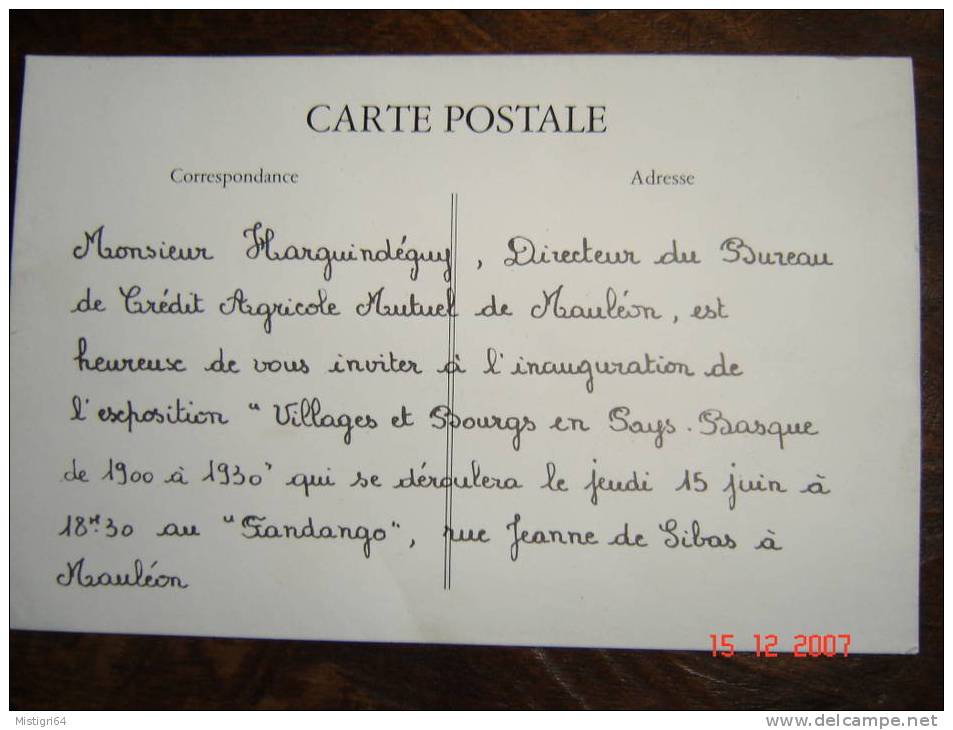 CARTE POSTALE
Correspondance Adresse
Monsieur Harguindéguy, Directeur du Bureau
de Crédit Agricole Mutuel de Mauléon, est
heureux de vous inviter à l'inauguration de
l'exposition "Villages et Bourgs en Pays-Basque
de 1900 à 1930" qui se déroulera le jeudi 15 juin à
18H30 au "Fandango", rue Jeanne de Gibas à
Mauléon
15 12 2007
Mistigri64
www.delcampe.net